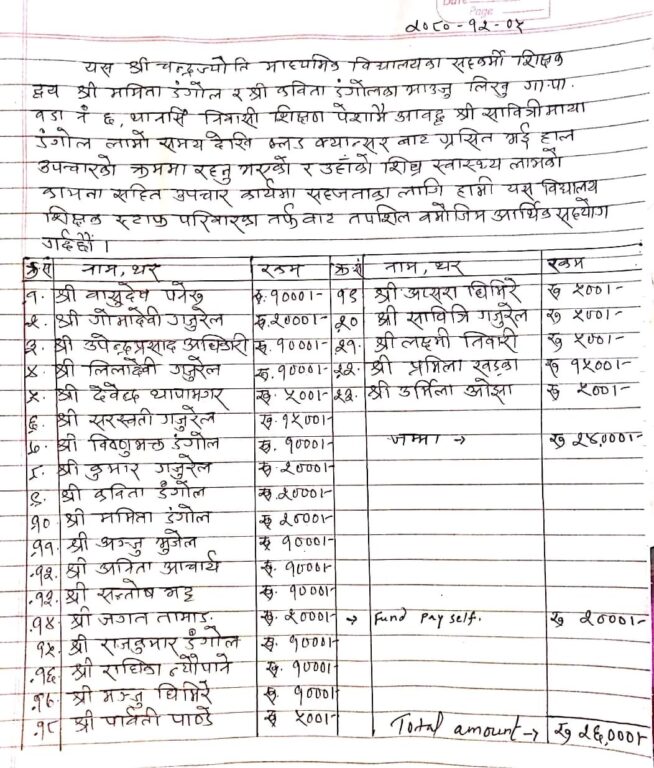 Date
Page
२०८०-१२-०५
यस श्री चन्द्रज्योति माध्यमिक विद्यालयका सहकर्मी शिक्षक
द्वय श्री ममिता डंगोल र श्री कविता डंगोलका भाउजु लिखु गा.पा.
वडा नं ६, थानसिं निवासी शिक्षण पेशामै आवद्ध श्री सावित्रीमाया
डंगोल लामो समय देखि ब्लड क्यान्सर बाट ग्रसित भई हाल
उपचारको क्रममा रहनु भएको र उहाँको शिघ्र स्वास्थ्य लाभको
कामना सहित उपचार कार्यमा सहजताका लागि हामी यस विद्यालय
शिक्षक स्टाफ परिवारका तर्फबाट तपशिल बमोजिम आर्थिक सहयोग
गर्दछौं ।
क्र.सं नाम, थर रकम क्र.सं नाम, थर रकम
१. श्री वासुदेव पनेरू रु. १०००।- १९ श्री आसरा घिमिरे रु ५००।-
२. श्री गोमादेवी गजुरेल रु. २०००।- २० श्री सावित्रि गजुरेल रु ५००।-
३. श्री उपेन्द्रप्रसाद अधिकारी रु. १०००।- २१. श्री लक्ष्मी तिवारी रु ५००।-
४. श्री लिलादेवी गजुरेल रु. १०००।- २२. श्री प्रमिला खड्का रु १५००।-
५. श्री देवेन्द्र थापामगर रु. ५००।- २३. श्री उर्मिला ओझा रु ५००।-
६. श्री सरस्वती गजुरेल रु. १५००।-
७. श्री विष्णुभक्त डंगोल रु. १०००।- जम्मा → रु २४,०००।-
८. श्री कुमार गजुरेल रु २०००।-
९. श्री कविता डंगोल रु २०००।-
१० श्री ममिता डंगोल रु २०००।-
११. श्री अञ्जु भुजेल रु १०००।-
१२. श्री अनिता आचार्य रु. १०००।-
१३. श्री सन्तोष भट्ट रु. १०००।-
१४ श्री जगत तामाङ रु. २०००।- → Fund Pay self. रु २०००।-
१५. श्री राजकुमार डंगोल रु. १०००।-
१६. श्री राधिका न्यौपाने रु. १०००।-
१७. श्री मञ्जु घिमिरे रु. १०००।-
१८ श्री पार्वती पाण्डे रु ५००।- Total amount → रु २६,०००।-